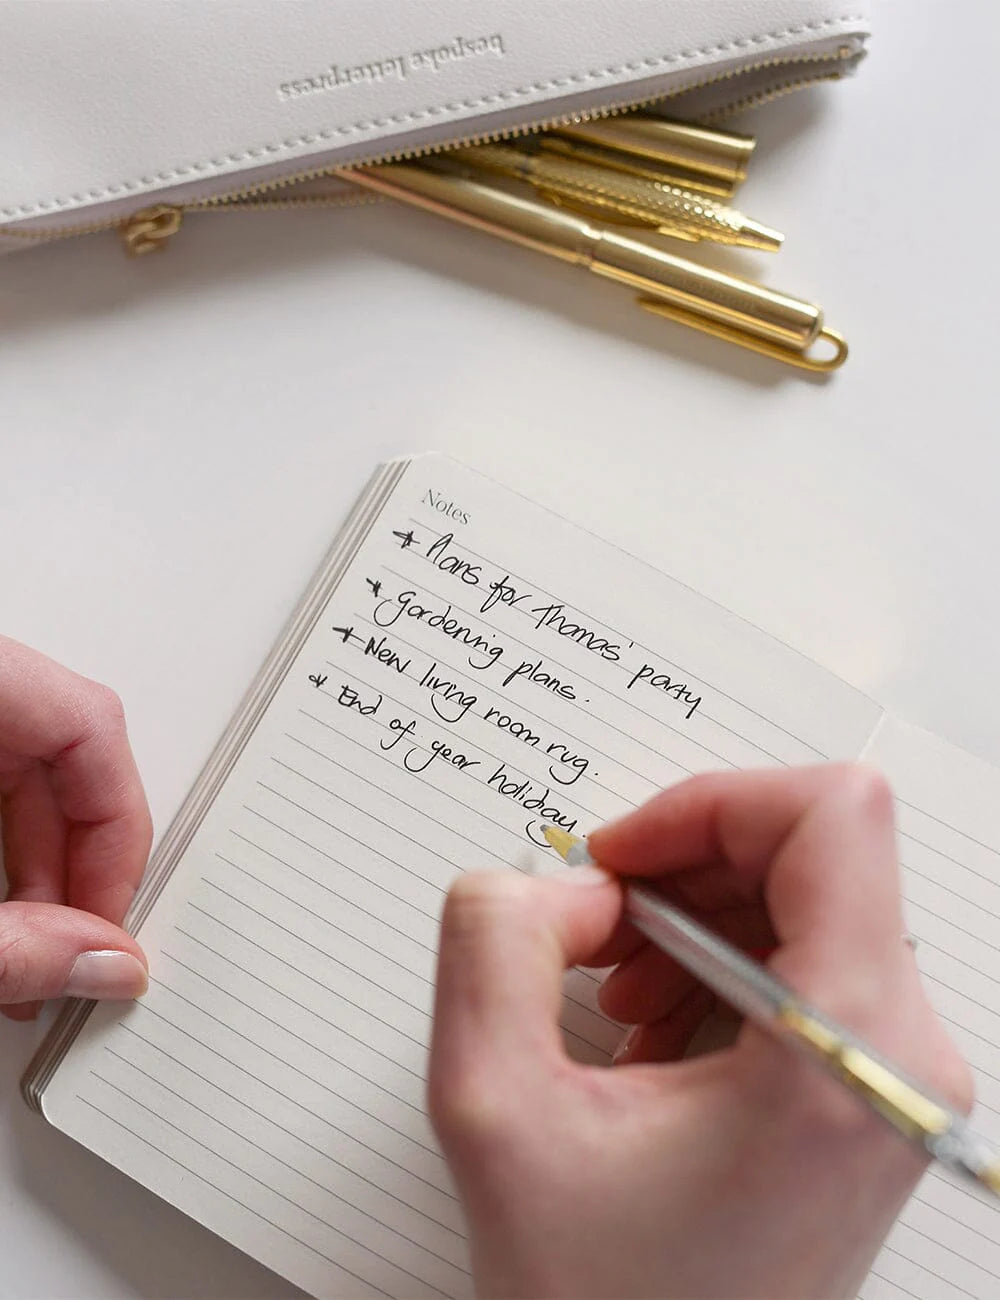 bespoke letterpress
Notes
* Plans for Thomas' party
* gardening plans.
* New living room rug.
* End of year holiday.